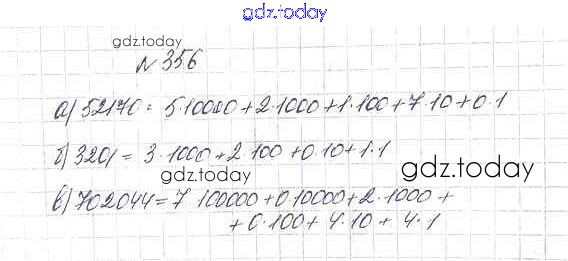 gdz.today
gdz.today
№ 356
а) 52170 = 5·10000+2·1000+1·100+7·10+0·1
б) 3201 = 3·1000+2·100+0·10+1·1
gdz.today
gdz.today
в) 702044 = 7·100000+0·10000+2·1000+
+0·100+4·10+4·1